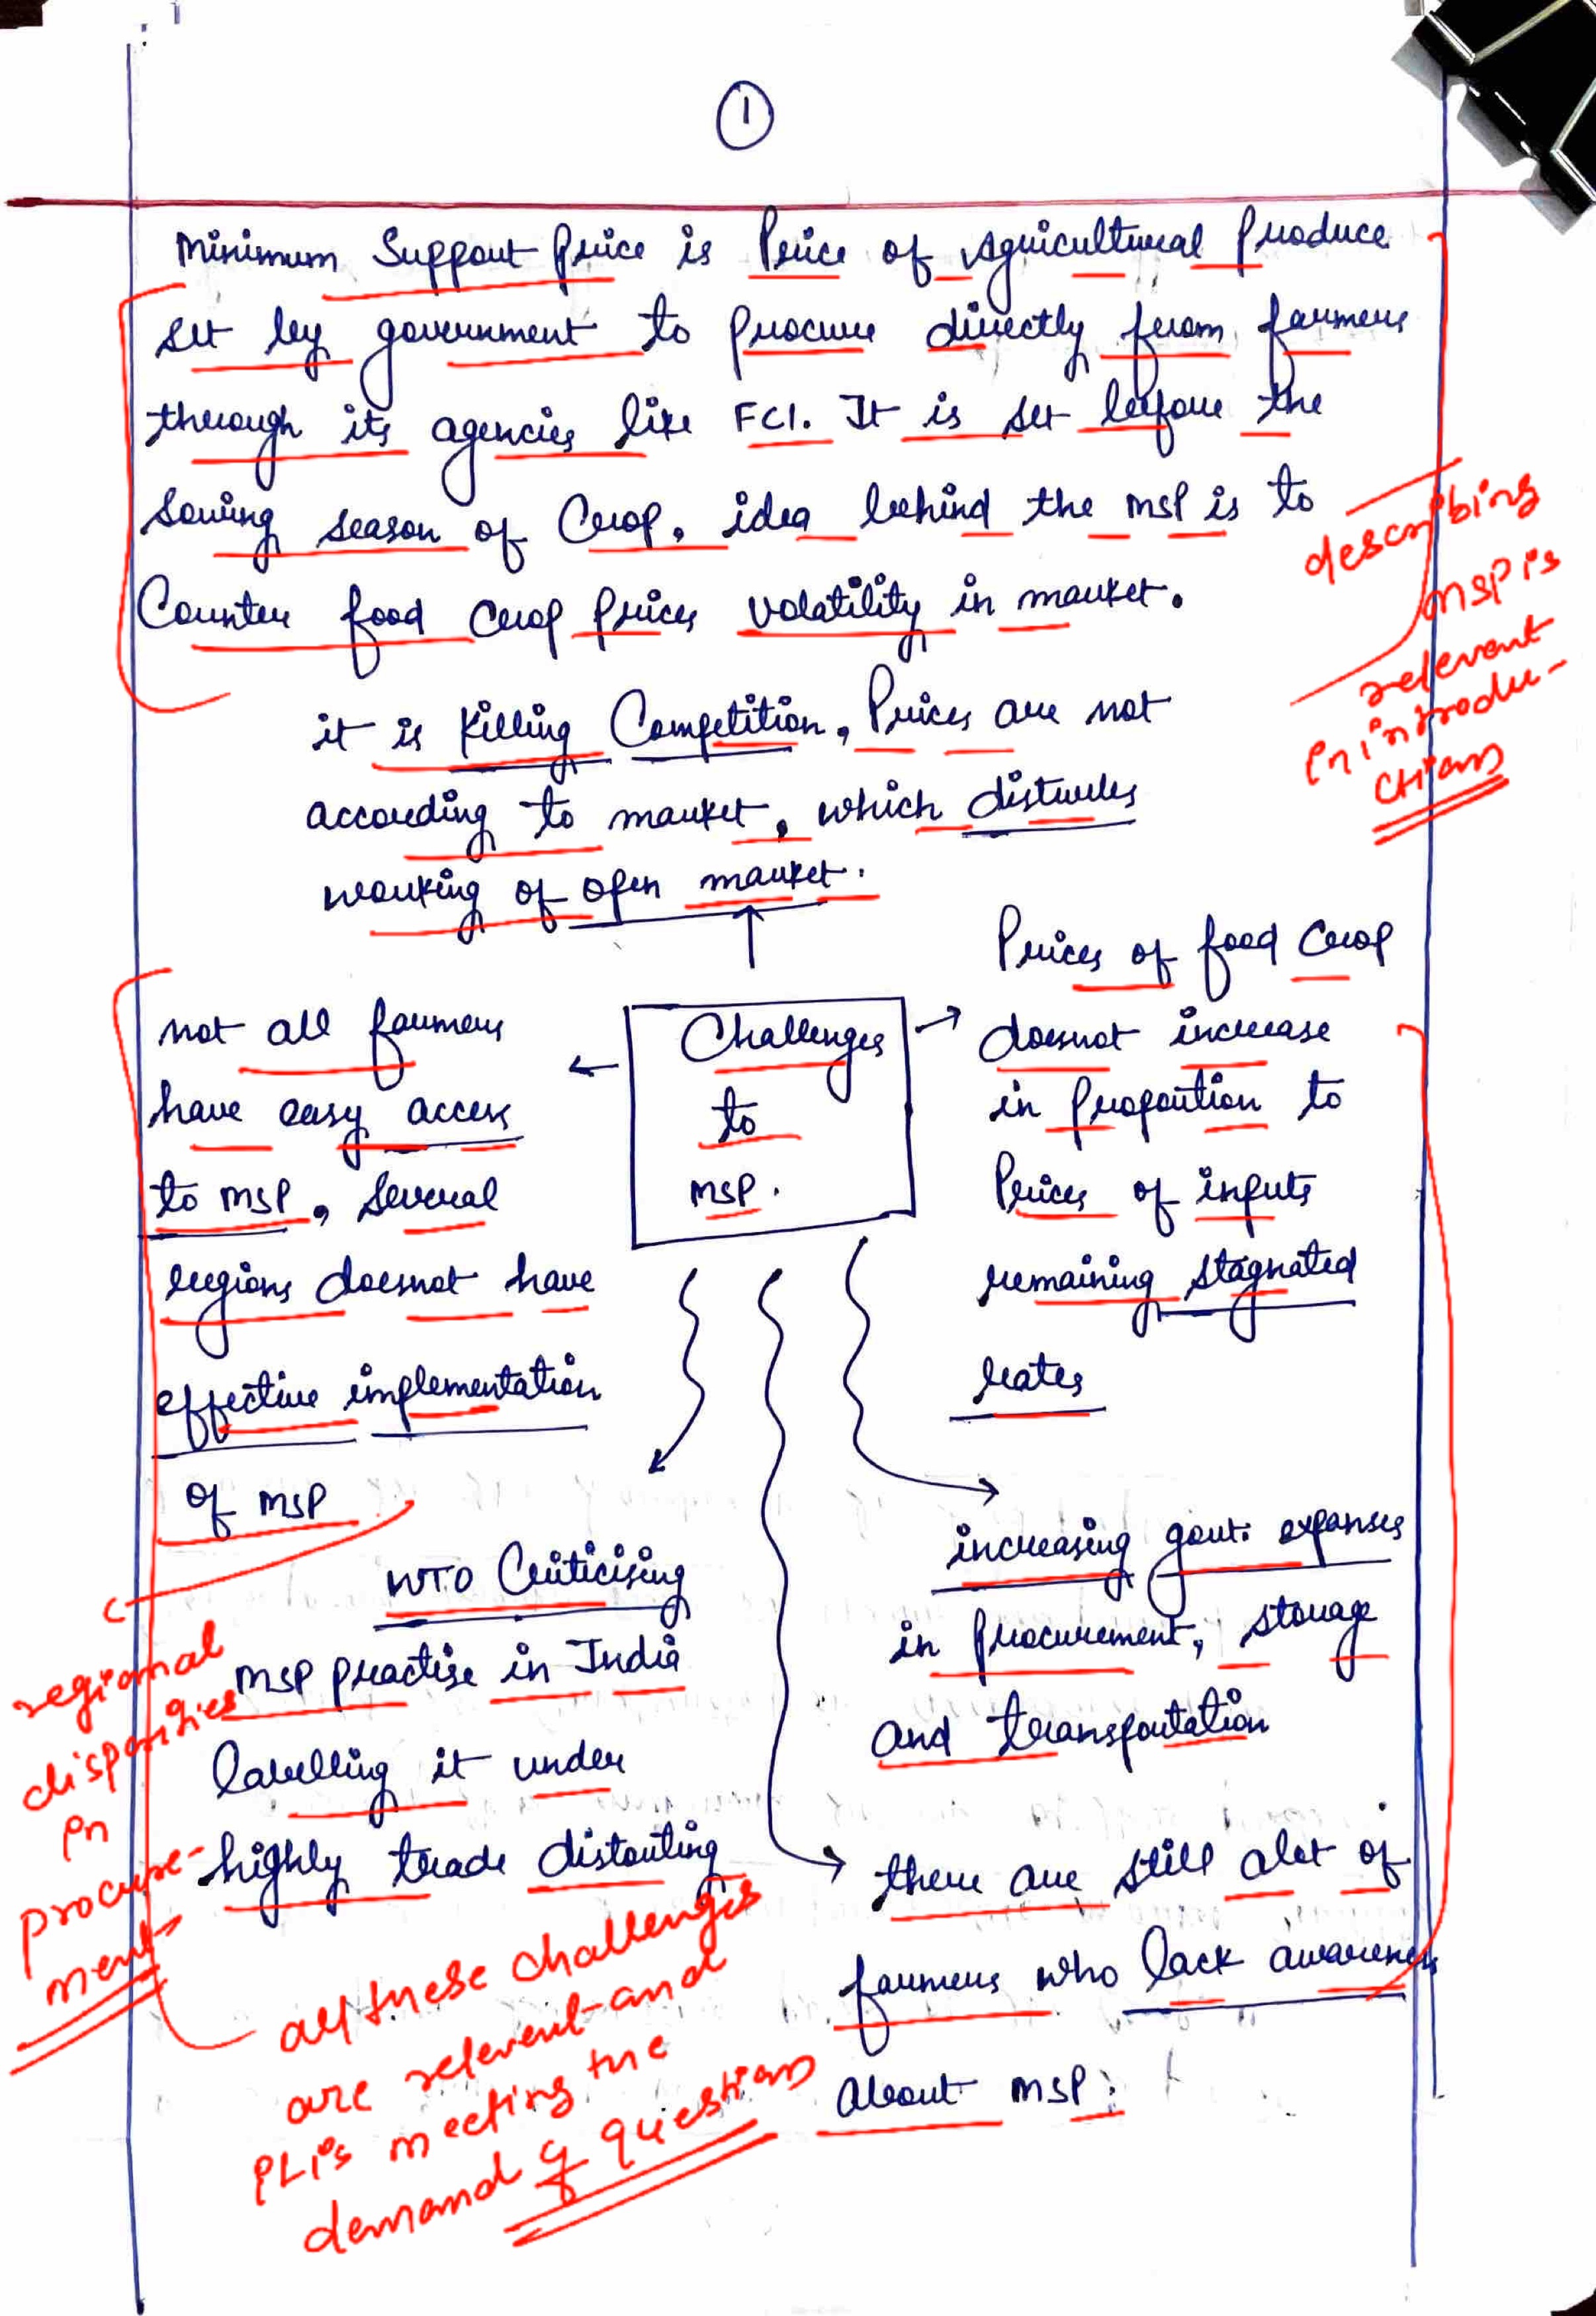 1
Minimum Support Price is Price of Agricultural Produce
set by government to procure directly from farmers
through its agencies like FCI. It is set before the
sowing season of Crop. idea behind the MSP is to
Counter food crop prices volatility in market.
describing
MSP is
relevent
in introdu-
ction
it is killing Competition, Prices are not
according to market, which disturbs
working of open market.
Challenges
to
MSP.
not all farmers
have easy access
to MSP, several
regions doesnot have
effective implementation
of MSP
regional
disparities
in
procure-
ment
Prices of food Crop
doesnot increase
in proportion to
Prices of inputs
remaining stagnated
rates
WTO Criticising
MSP practise in India
labelling it under
highly trade distorting
increasing govt. expanses
in procurement, storage
and transportation
there are still alot of
farmers who lack awareness
about MSP.
all these challenges
are relevent and
meeting the
demand of question